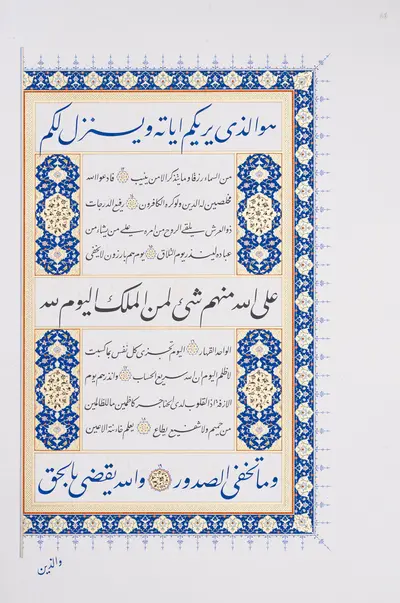 هو الذی یریکم ایاته و ینزل لکم
من السماء رزقا و ما یتذکر الا من ینیب فادعوا الله
مخلصین له الدین ولو کره الکافرون رفیع الدرجات
ذو العرش یلقی الروح من امره علی من یشاء من
عباده لینذر یوم التلاق یوم هم بارزون لا یخفی
علی الله منهم شیء لمن الملک الیوم لله
الواحد القهار الیوم تجزی کل نفس بما کسبت
لا ظلم الیوم ان الله سریع الحساب وانذرهم یوم
الازفة اذ القلوب لدی الحناجر کاظمین ما للظالمین
من حمیم ولا شفیع یطاع یعلم خائنة الاعین
وما تخفی الصدور والله یقضی بالحق
والذین